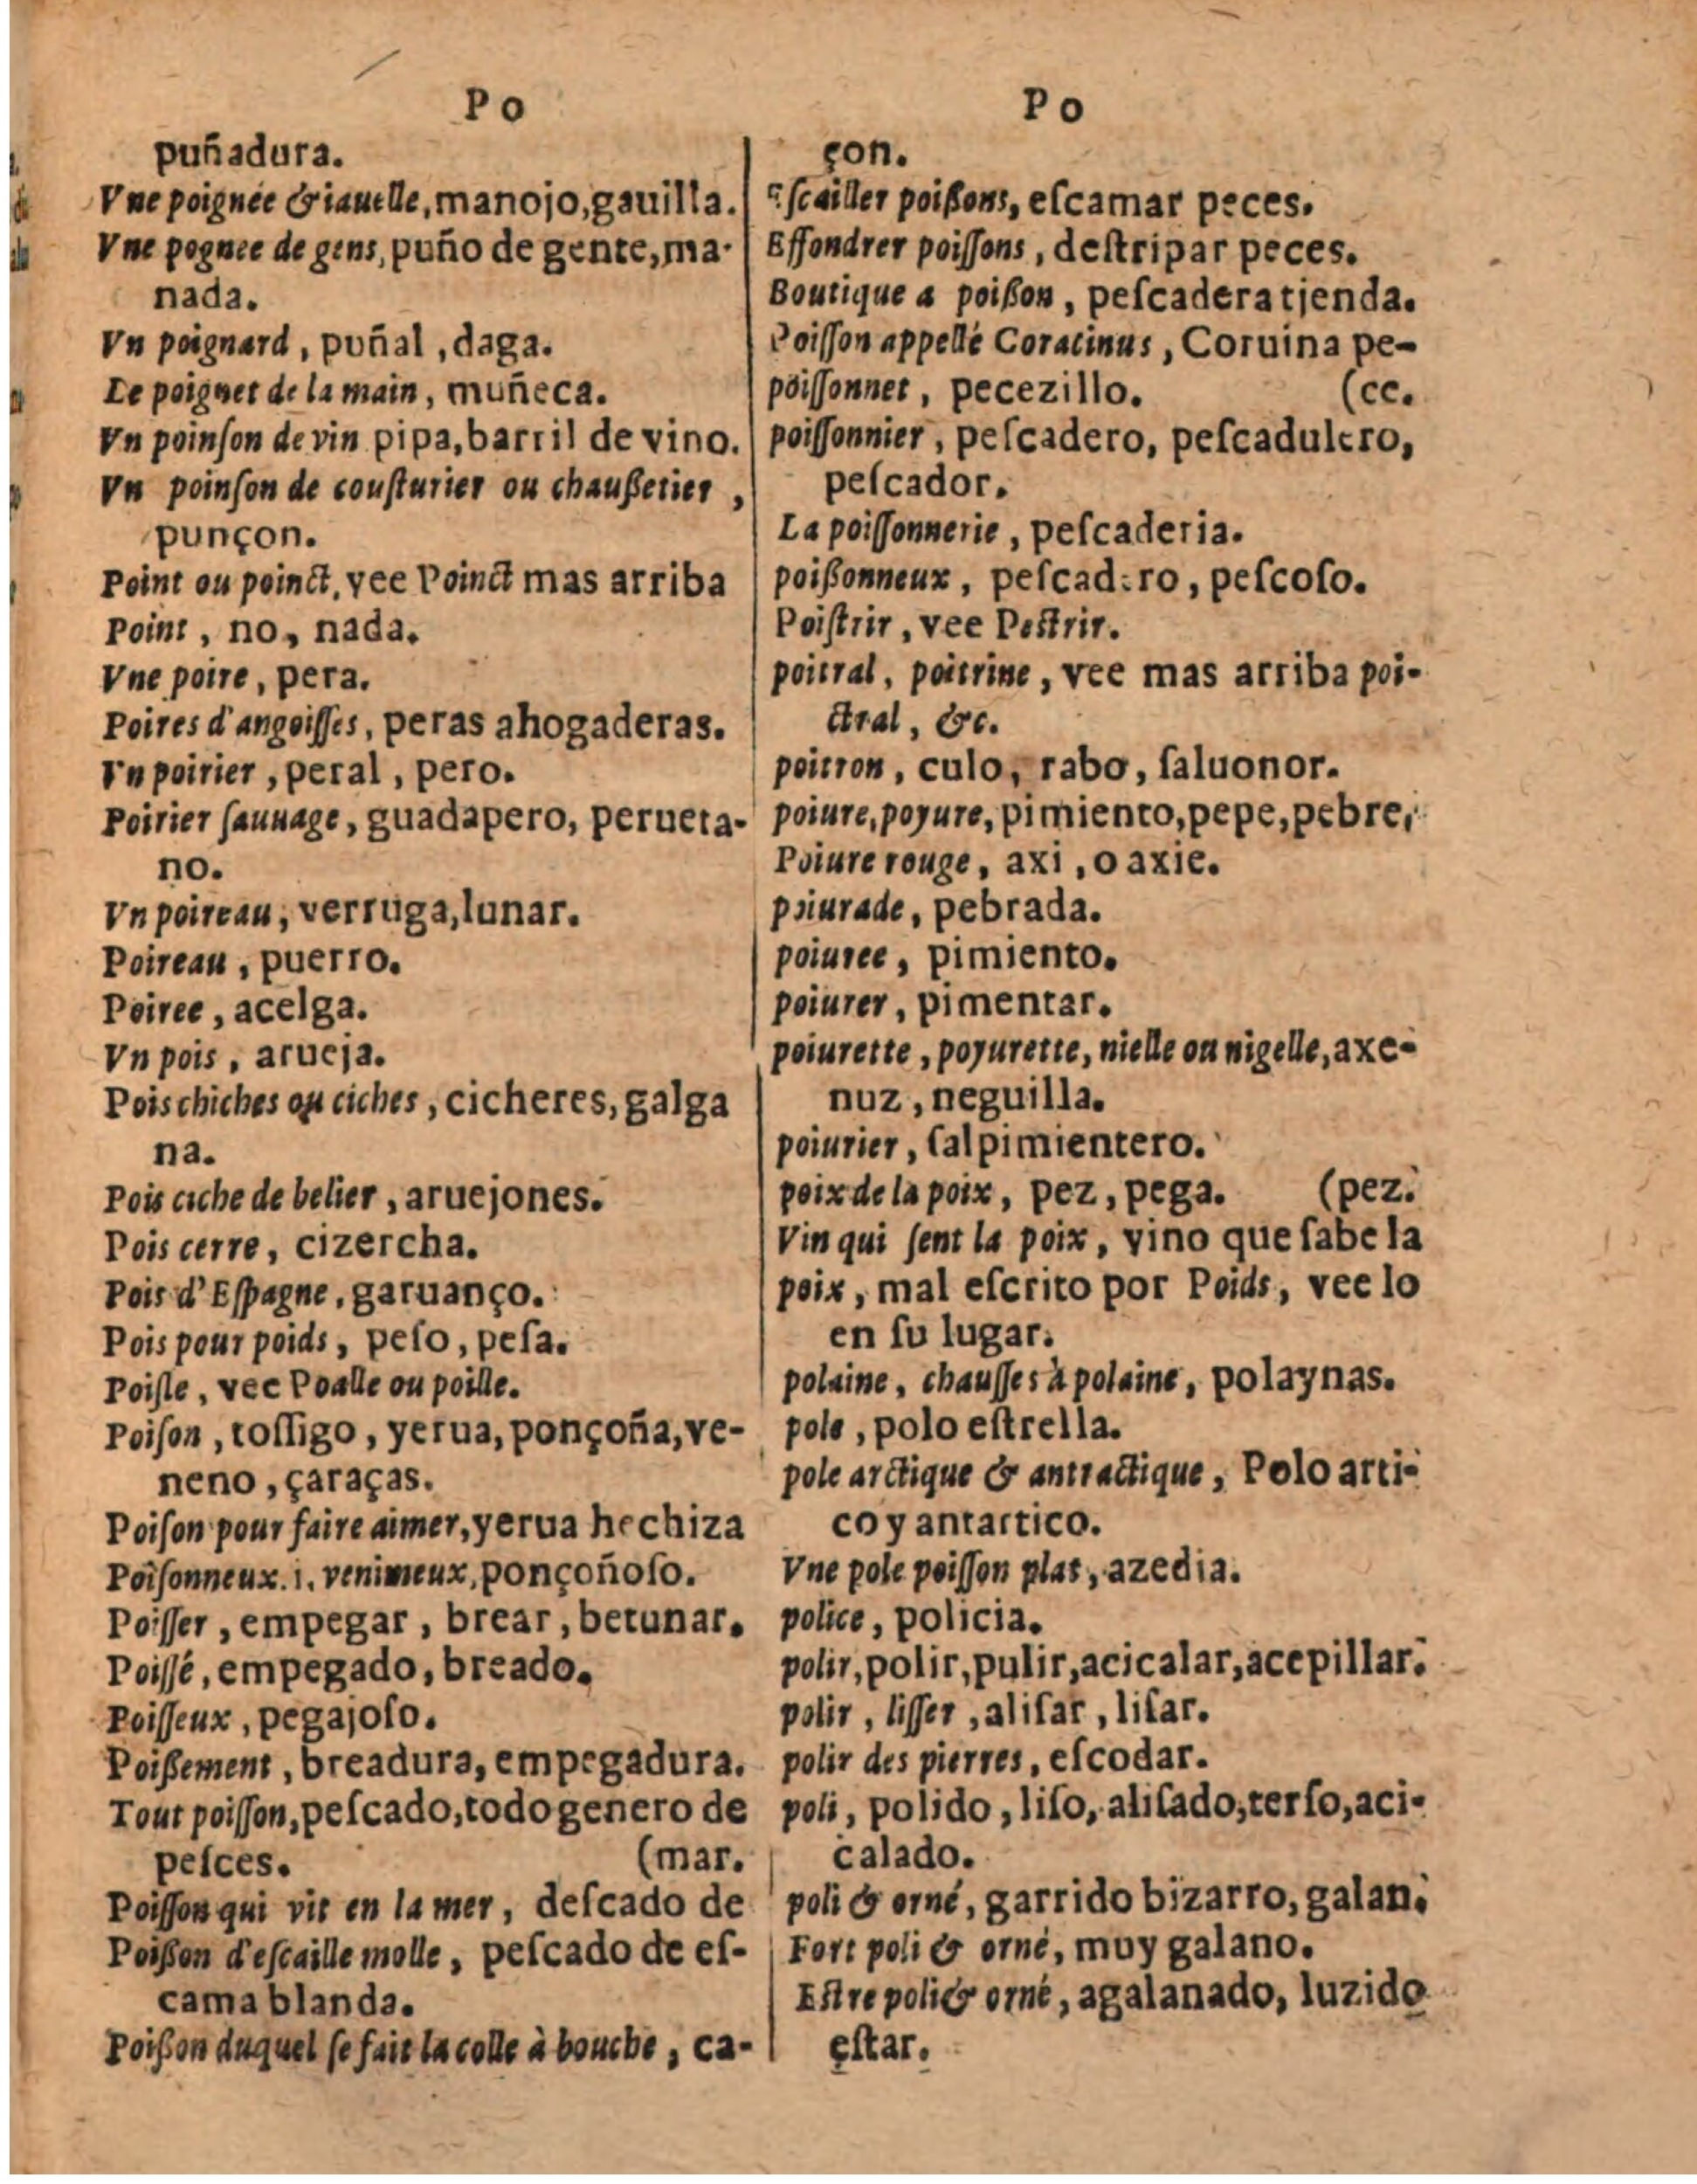 Po
puñadura.
Vne poignée & iauelle, manojo, gauilla.
Vne pognee de gens, puño de gente, ma-
nada.
Vn poignard, puñal, daga.
Le poignet de la main, muñeca.
Vn poinſon de vin pipa, barril de vino.
Vn poinſon de couſturier ou chaußetier,
punçon.
Point ou poinct, vee Poinct mas arriba
Point, no, nada.
Vne poire, pera.
Poires d'angoiſſes, peras ahogaderas.
Vn poirier, peral, pero.
Poirier ſauuage, guadapero, perueta-
no.
Vn poireau, verruga, lunar.
Poireau, puerro.
Poiree, acelga.
Vn pois, arueja.
Pois chiches ou ciches, cicheres, galga
na.
Pois ciche de belier, aruejones.
Pois cerre, cizercha.
Pois d'Eſpagne, garuanço.
Pois pour poids, peſo, peſa.
Poiſle, vee Poalle ou poille.
Poiſon, toſſigo, yerua, ponçoña, ve-
neno, çaraças.
Poiſon pour faire aimer, yerua hechiza
Poiſonneux. i. venimeux, ponçoñoſo.
Poiſſer, empegar, brear, betunar.
Poiſſé, empegado, breado.
Poiſſeux, pegajoſo.
Poißement, breadura, empegadura.
Tout poiſſon, peſcado, todo genero de
peſces. (mar.
Poiſſon qui vit en la mer, deſcado de
Poißon d'eſcaille molle, peſcado de eſ-
cama blanda.
Poißon duquel ſe fait la colle à bouche, ca-
Po
çon.
Eſcailler poißons, eſcamar peces.
Effondrer poiſſons, deſtripar peces.
Boutique a poißon, peſcadera tjenda.
Poiſſon appellé Coracinus, Coruina pe-
poiſſonnet, pecezillo. (ce.
poiſſonnier, peſcadero, peſcadulero,
peſcador.
La poiſſonnerie, peſcaderia.
poißonneux, peſcadero, peſcoſo.
Poiſtrir, vee Peſtrir.
poitral, poitrine, vee mas arriba poi-
ctral, &c.
poitron, culo, rabo, ſaluonor.
poiure, poyure, pimiento, pepe, pebre,
Poiure rouge, axi, o axie.
poiurade, pebrada.
poiuree, pimiento.
poiurer, pimentar.
poiurette, poyurette, nielle ou nigelle, axe-
nuz, neguilla.
poiurier, ſalpimientero.
poix de la poix, pez, pega. (pez.
Vin qui ſent la poix, vino que ſabe la
poix, mal eſcrito por Poids, vee lo
en ſu lugar.
polaine, chauſſes à polaine, polaynas.
pole, polo eſtrella.
pole arctique & antractique, Polo arti-
co y antartico.
Vne pole poiſſon plat, azedia.
police, policia.
polir, polir, pulir, acicalar, acepillar.
polir, liſſer, aliſar, liſar.
polir des pierres, eſcodar.
poli, polido, liſo, aliſado, terſo, aci-
calado.
poli & orné, garrido bizarro, galan.
Fort poli & orné, muy galano.
Eſtre poli & orné, agalanado, luzido
eſtar.